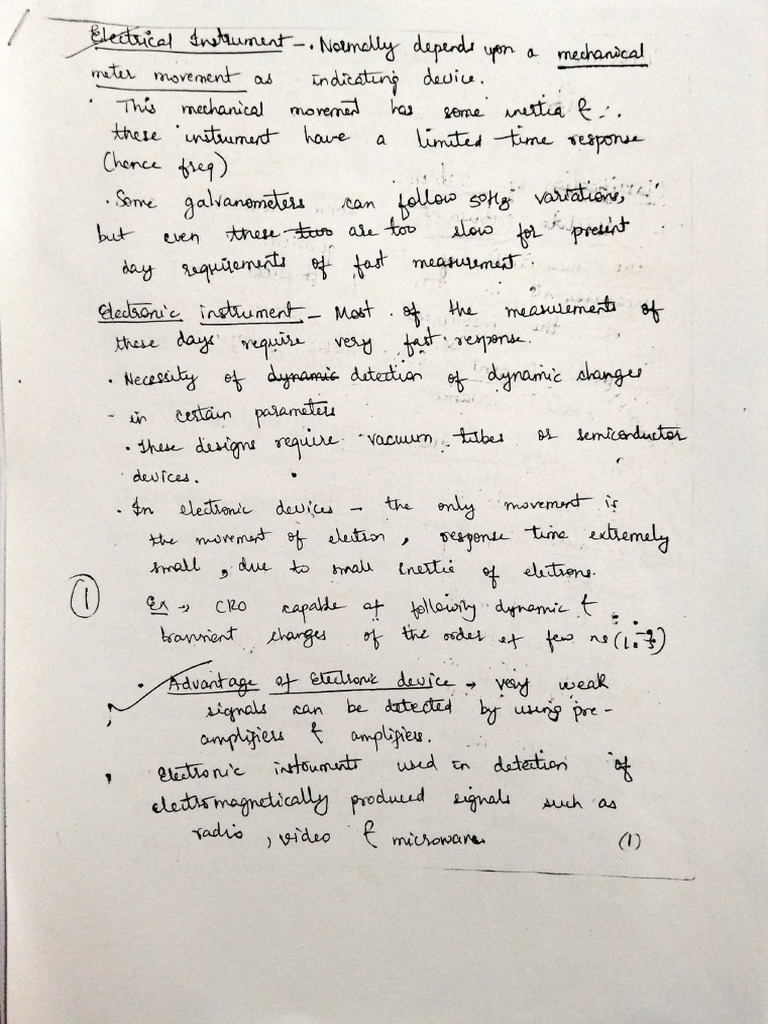 Electrical Instrument - . Normally depends upon a mechanical
meter movement as indicating device.
· This mechanical movement has some inertia & ∴
these instrument have a limited time response
(hence freq)
· Some galvanometers can follow 50Hz variations,
but even these two are too slow for present
day requirements of fast measurement.
Electronic instrument - Most of the measurements of
these days require very fast response.
· Necessity of dynamic detection of dynamic changes
- in certain parameters
· These designs require vacuum tubes or semiconductor
devices.
· In electronic devices - the only movement is
the movement of electron, response time extremely
small, due to small inertia of electrons.
① Ex → CRO capable of following dynamic &
transient changes of the order of few ns
· Advantage of Electronic device → very weak
signals can be detected by using pre-
amplifiers & amplifiers.
Electronic instruments used in detection of
electromagnetically produced signals such as
radio, video & microwave. (1)